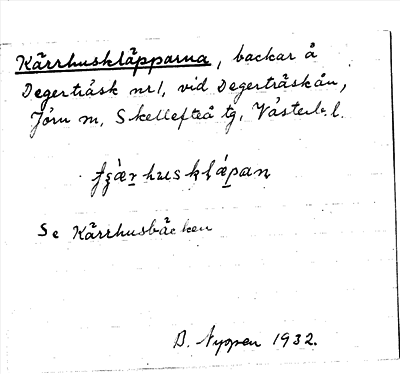 Kärrhuskläpparna, backar å
Degerträsk nr 1, vid Degerträskån,
Jörn sn, Skellefteå tg, Västerb. l.
Se Kärrhusbäcken
B. Nyman 1932.